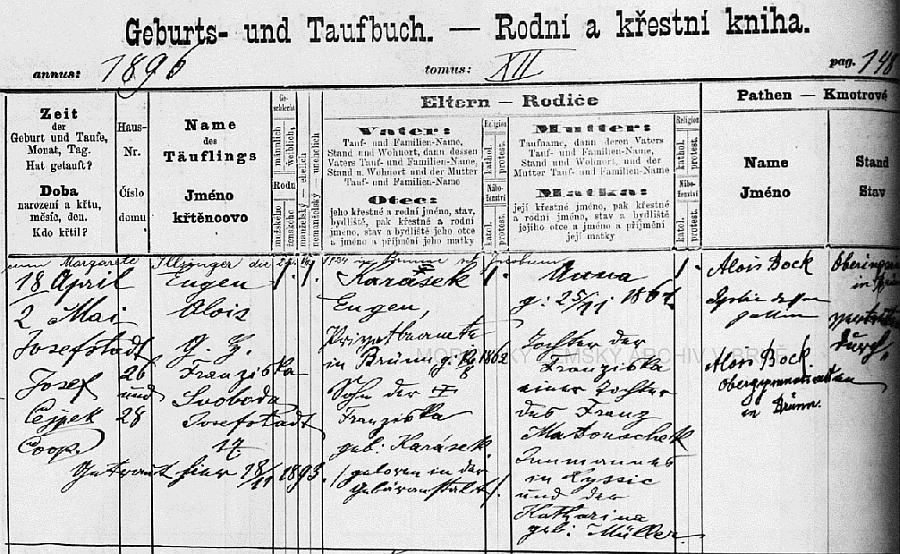 Geburts- und Taufbuch. — Rodní a křestní kniha.
annus: 1896 tomus: XII pag. 148
Zeit
der
Geburt und Taufe,
Monat, Tag.
Hat getauft?
Doba
narození a křtu,
měsíc, den.
Kdo křtil?
Haus-
Nr.
Číslo
domu
Name
des
Täuflings
Jméno
křtěncovo
Geschlecht
männlich,
weiblich,
Rodu
mužského
ženského
ehelich
unehelich
manželský
nemanželský
Eltern — Rodiče
Vater:
Tauf- und Familien-Name,
Stand und Wohnort, dann dessen
Vaters Tauf- und Familien-Name,
Stand u. Wohnort und der Mutter
Tauf- und Familien-Name
Otec:
jeho křestné a rodní jméno, stav,
bydliště, pak křestné a rodní
jméno, stav a bydliště jeho otce
a jméno a příjmení jeho matky
Religion
kathol.
protest.
Nábo-
ženství
katol.
protest.
Mutter:
Taufname, dann deren Vaters
Tauf- und Familien-Name,
Stand und Wohnort, und der
Mutter Tauf- und Familien-Name
Matka:
její křestné jméno, pak křestné
a rodní jméno, stav a bydliště
jejího otce a jméno a příjmení
její matky
Religion
kathol.
protest.
Nábo-
ženství
katol.
protest.
Pathen — Kmotrové
Name
Jméno
Stand
Stav
cum Margarete
18 April
2 Mai
Josefstadt
Josef
Cejpek
Coop.
26
und
28
Eugen
Alois
Franziska
Svoboda
Josefstadt
17.
Getraut hier 18/11 1893.
Karásek
Eugen,
Privatbeamte
in Brünn g. 1862
Sohn der
Franziska
geb. Karásek
geboren in der
Gebäranstalt
Anna
g. 25/11 1867
Tochter der
Franziska
einer Tochter
des Franz
Matouschek
Inmannes
in Lyssic
und der
Katharina
geb. Müller
Alois Bock
Alois Bock
in Brünn.
durch
MORAVSKÝ ZEMSKÝ ARCHIV V BRNĚ